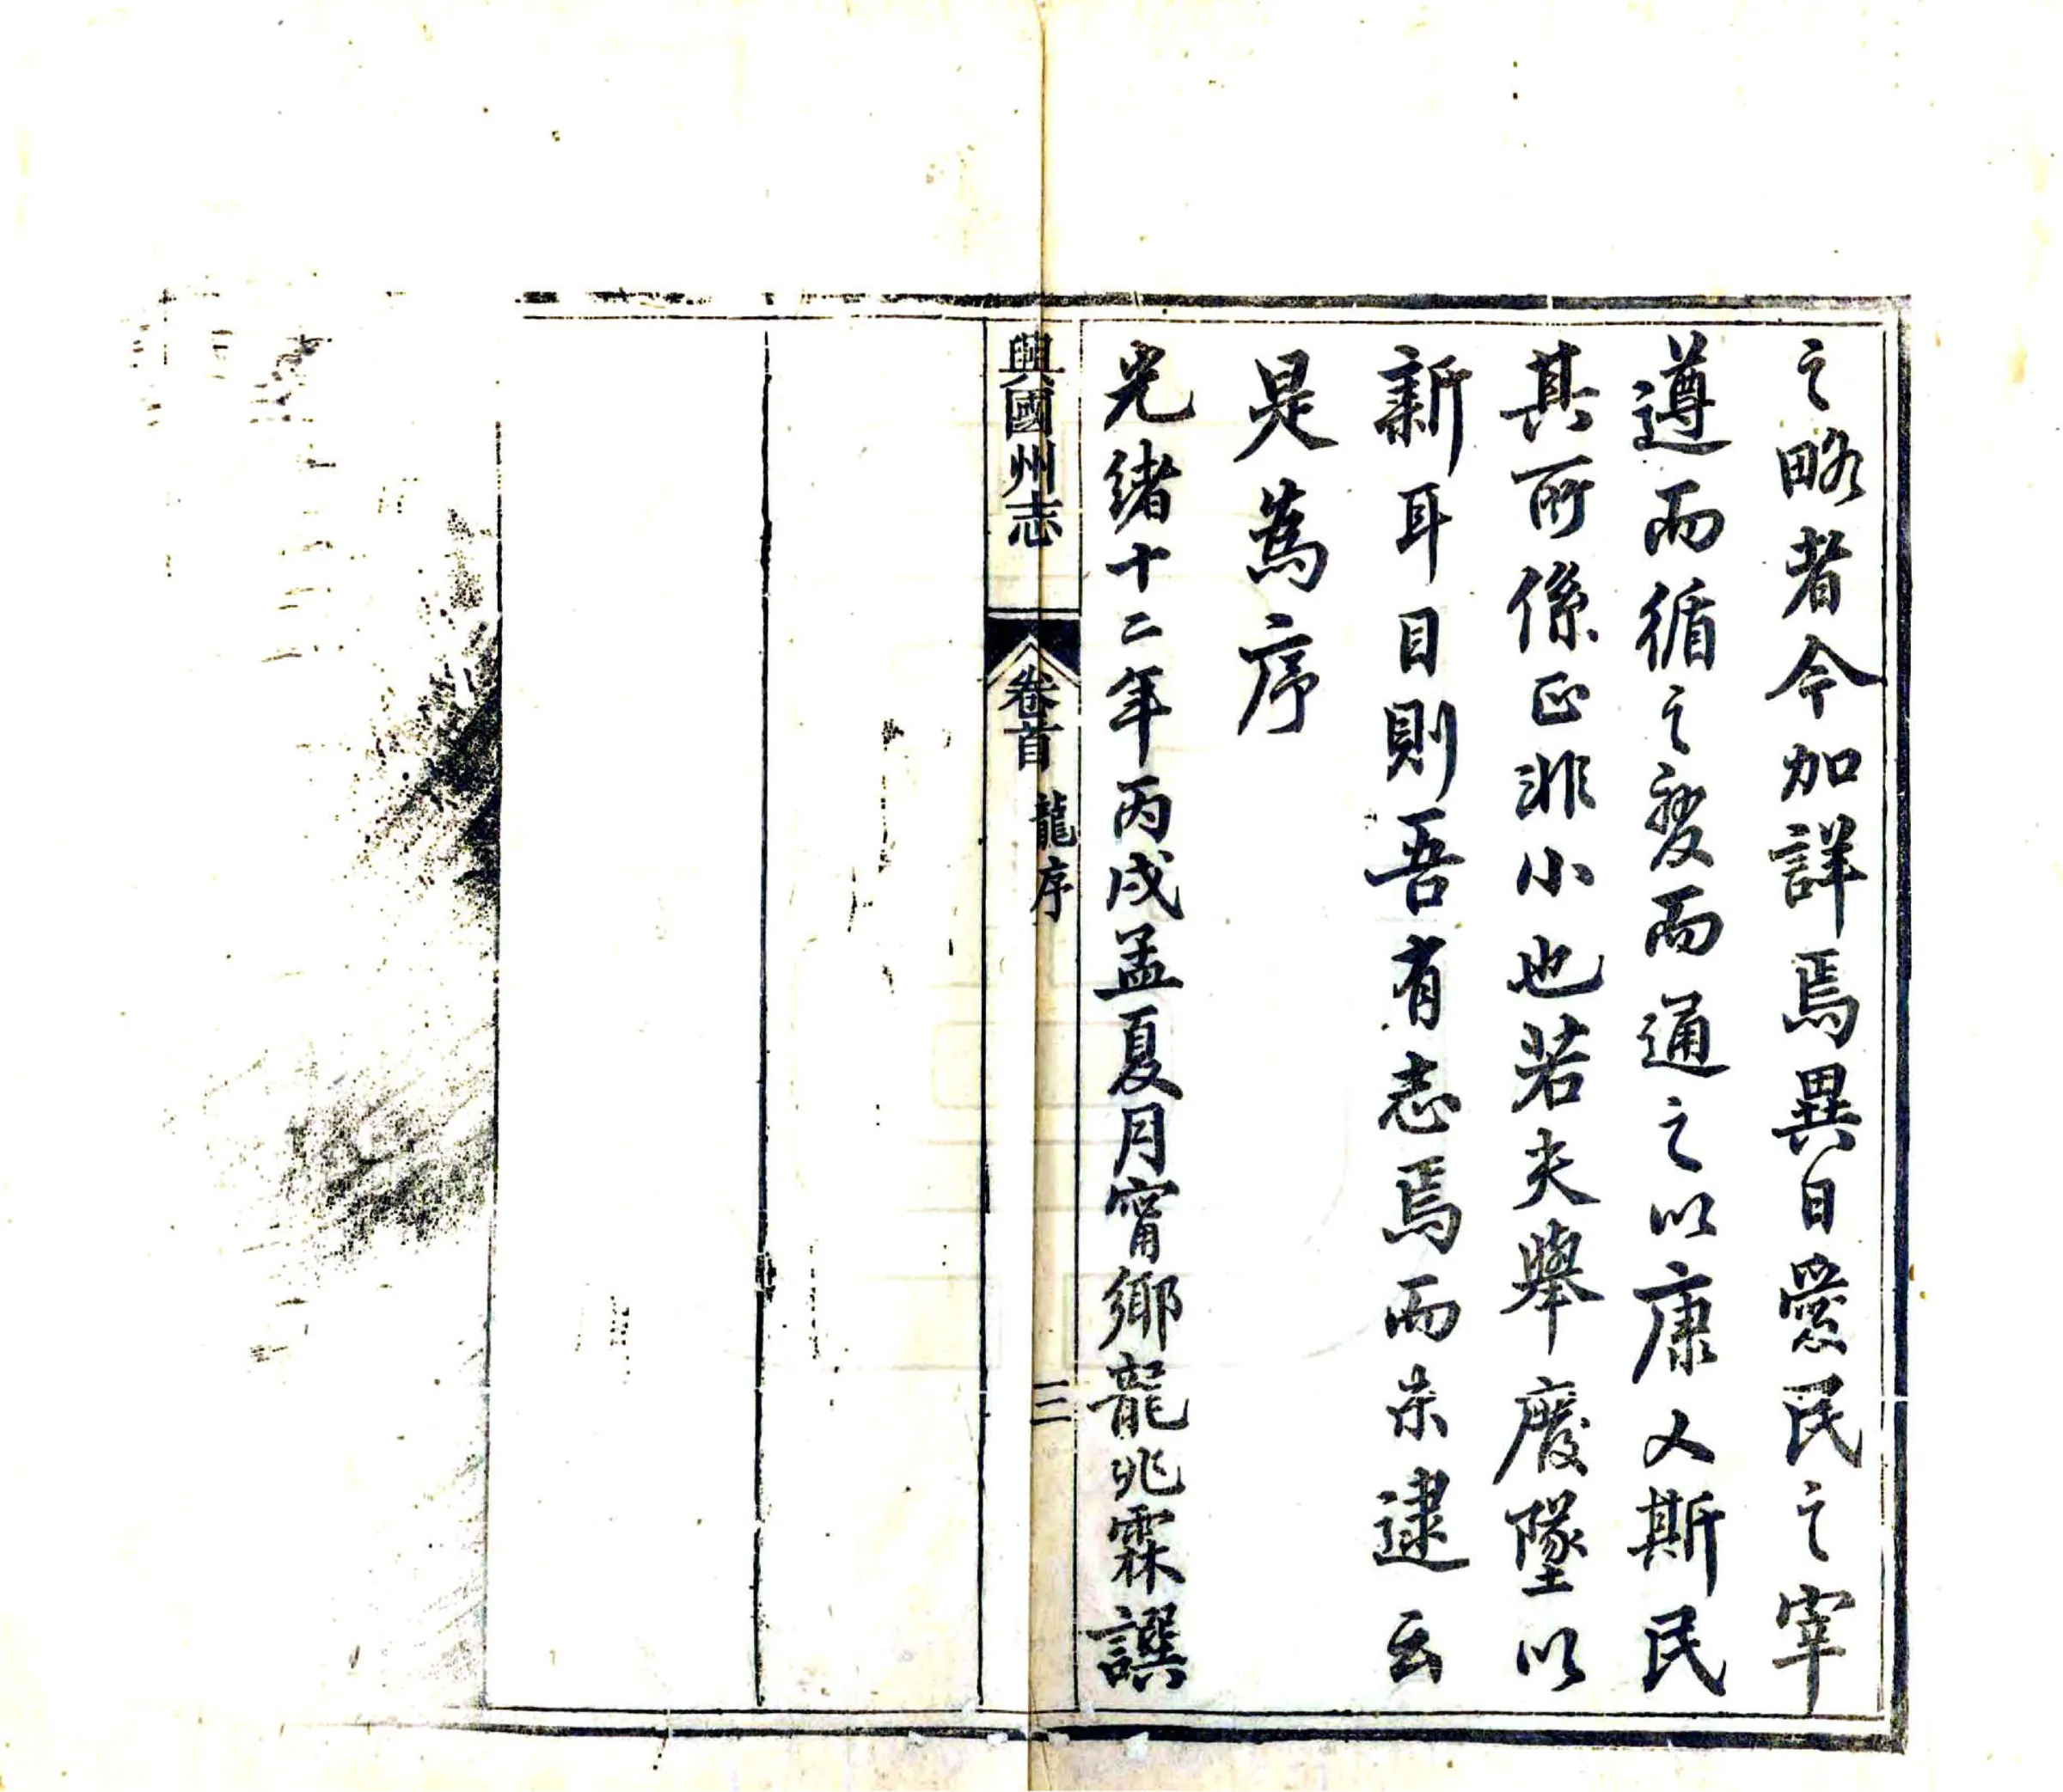 之略者今加詳焉異日愛民之宰
遵而循之變而通之以康乂斯民
其所係正非小也若夫舉廢墜以
新耳目則吾有志焉而未逮云
是為序
光緒十二年丙戌孟夏月甯鄉龍兆霖譔
興國州志
卷首
龍序
三